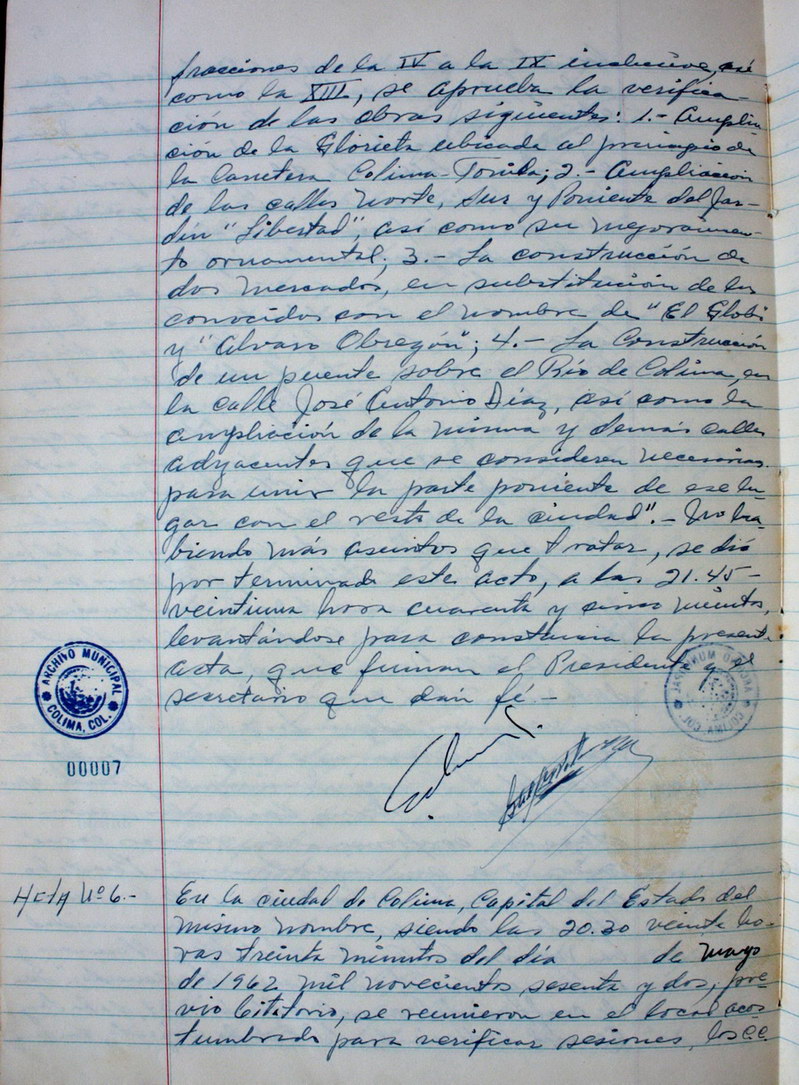 fracciones de la IV a la IX inclusive, así
como la XIII, se aprueba la verifica-
ción de las obras siguientes: 1.- Amplia
ción de la Glorieta ubicada al principio de
la Carretera Colima-Tonila; 2.- Ampliación
de las calles Norte, Sur y Poniente del Jar-
dín "Libertad", así como su mejoramien-
to ornamental; 3.- La construcción de
dos mercados, en substitución de los
conocidos con el nombre de "El Globo
y "Alvaro Obregón"; 4.- La Construcción
de un puente sobre el Río de Colima, en
la calle José Antonio Díaz, así como la
ampliación de la misma y demás calles
adyacentes que se consideren necesarias
para unir la parte poniente de ese lu-
gar con el resto de la ciudad".- No ha-
biendo más asuntos que tratar, se dió
por terminado este acto, a las 21.45-
veintiuna hora cuarenta y cinco minutos,
levantándose para constancia la presente
acta, que firman el Presidente y el
secretario que dan fé-
ARCHIVO MUNICIPAL
COLIMA, COL.
00007
ARCHIVO MUNICIPAL
COLIMA, COL.
Acta Nº 6.-
En la ciudad de Colima, Capital del Estado del
mismo nombre, siendo las 20.30 veinte ho-
ras treinta minutos del día de mayo
de 1962 mil novecientos sesenta y dos, pre-
vio Citatorio, se reunieron en el local acos
tumbrado para verificar sesiones, los C.C.